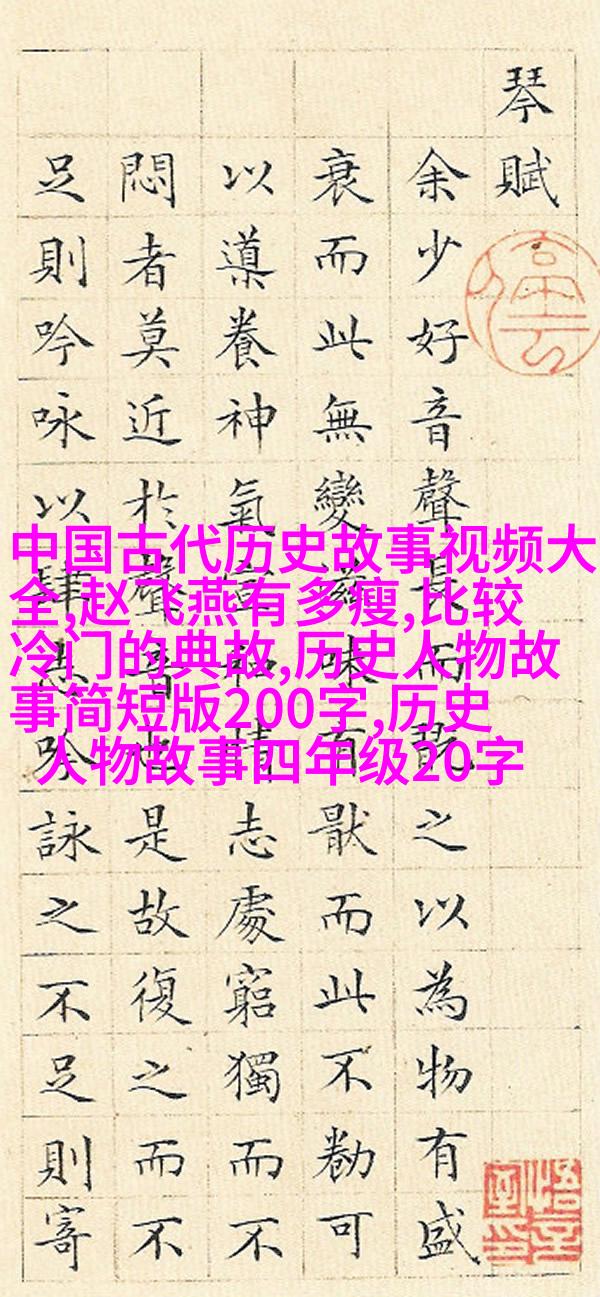 琴賦
余少好音聲長而翫之以為物有盛
衰而此無變滋味有猒而此不勌可
以導養神氣宣和情志處窮獨而不
悶者莫近於聲音也是故復之而不
足則吟咏以肆志吟詠之不足則寄
中国古代历史故事视频大
全,赵飞燕有多瘦,比较
冷门的典故,历史人物故
事简短版200字,历史
人物故事四年级20字